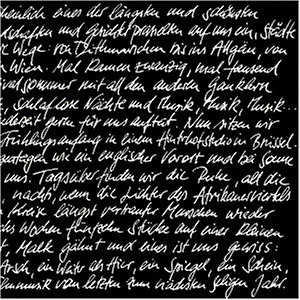 heinlich eines der längsten und schönsten
dschaften und Gesichter prasselten auf uns ein, Städte
Wege: von Dithmarschen bis ins Allgäu, von
Wien. Mal kamen zwanzig, mal tausend
valsommer mit all den anderen Gauklern
schlaflose Nächte und Musik, Musik, Musik...
ederzeit gerne für uns auftat. Nun sitzen wir
Frühlingsanfang in einem Hinterhofstudio in Brüssel.
wie ein englischer Vorort und bei Sonne
uns. Tagsüber finden wir die Ruhe, all die
nachts, wenn die Lichter des Afrikanerviertels
Kreis längst vertrauter Menschen wieder
chs Wochen fünfzehn Stücke auf einer kleinen
t. Malk gähnt und eines ist uns gewiss:
Arsch, ein Walter als Hier, ein Spiegel, ein Schein,
enmusik vom letzten zum nächsten seligen Jahr.